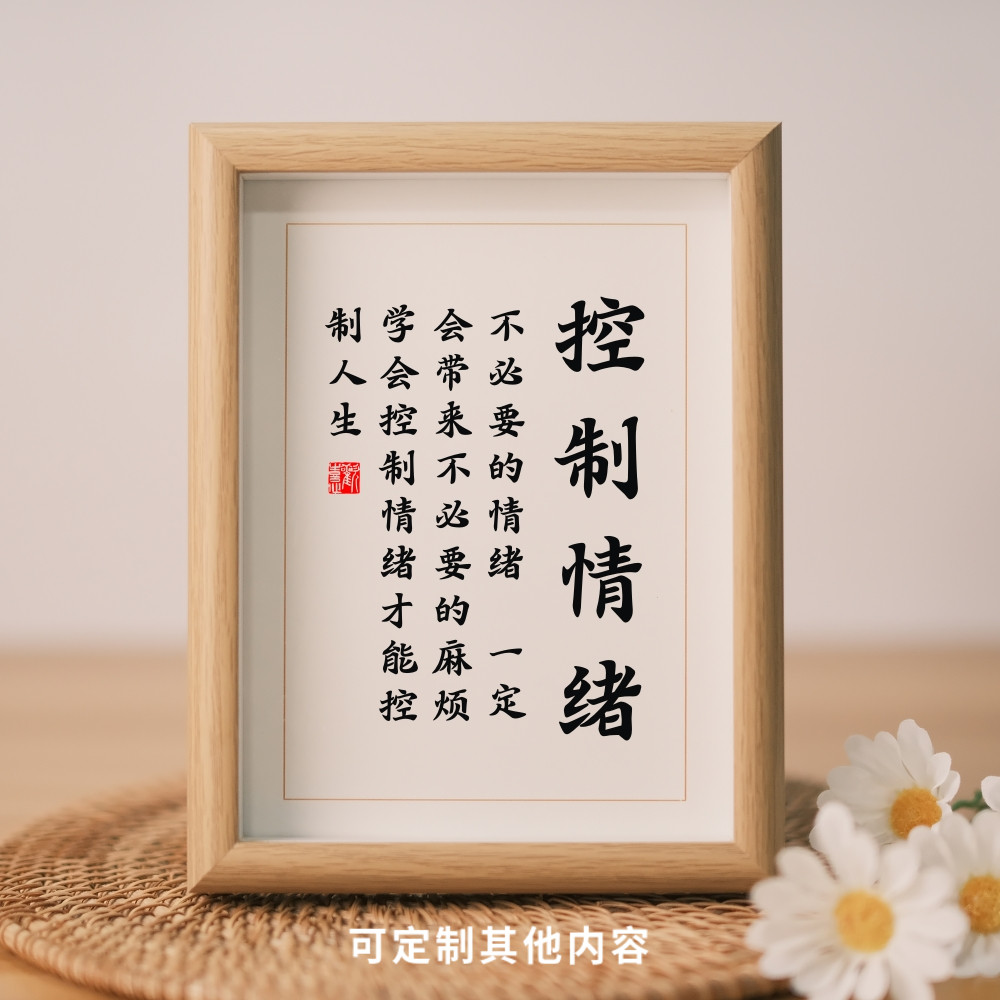 控制情绪
不必要的情绪 一定
会带来不必要的麻烦
学会控制情绪才能控
制人生
可定制其他内容